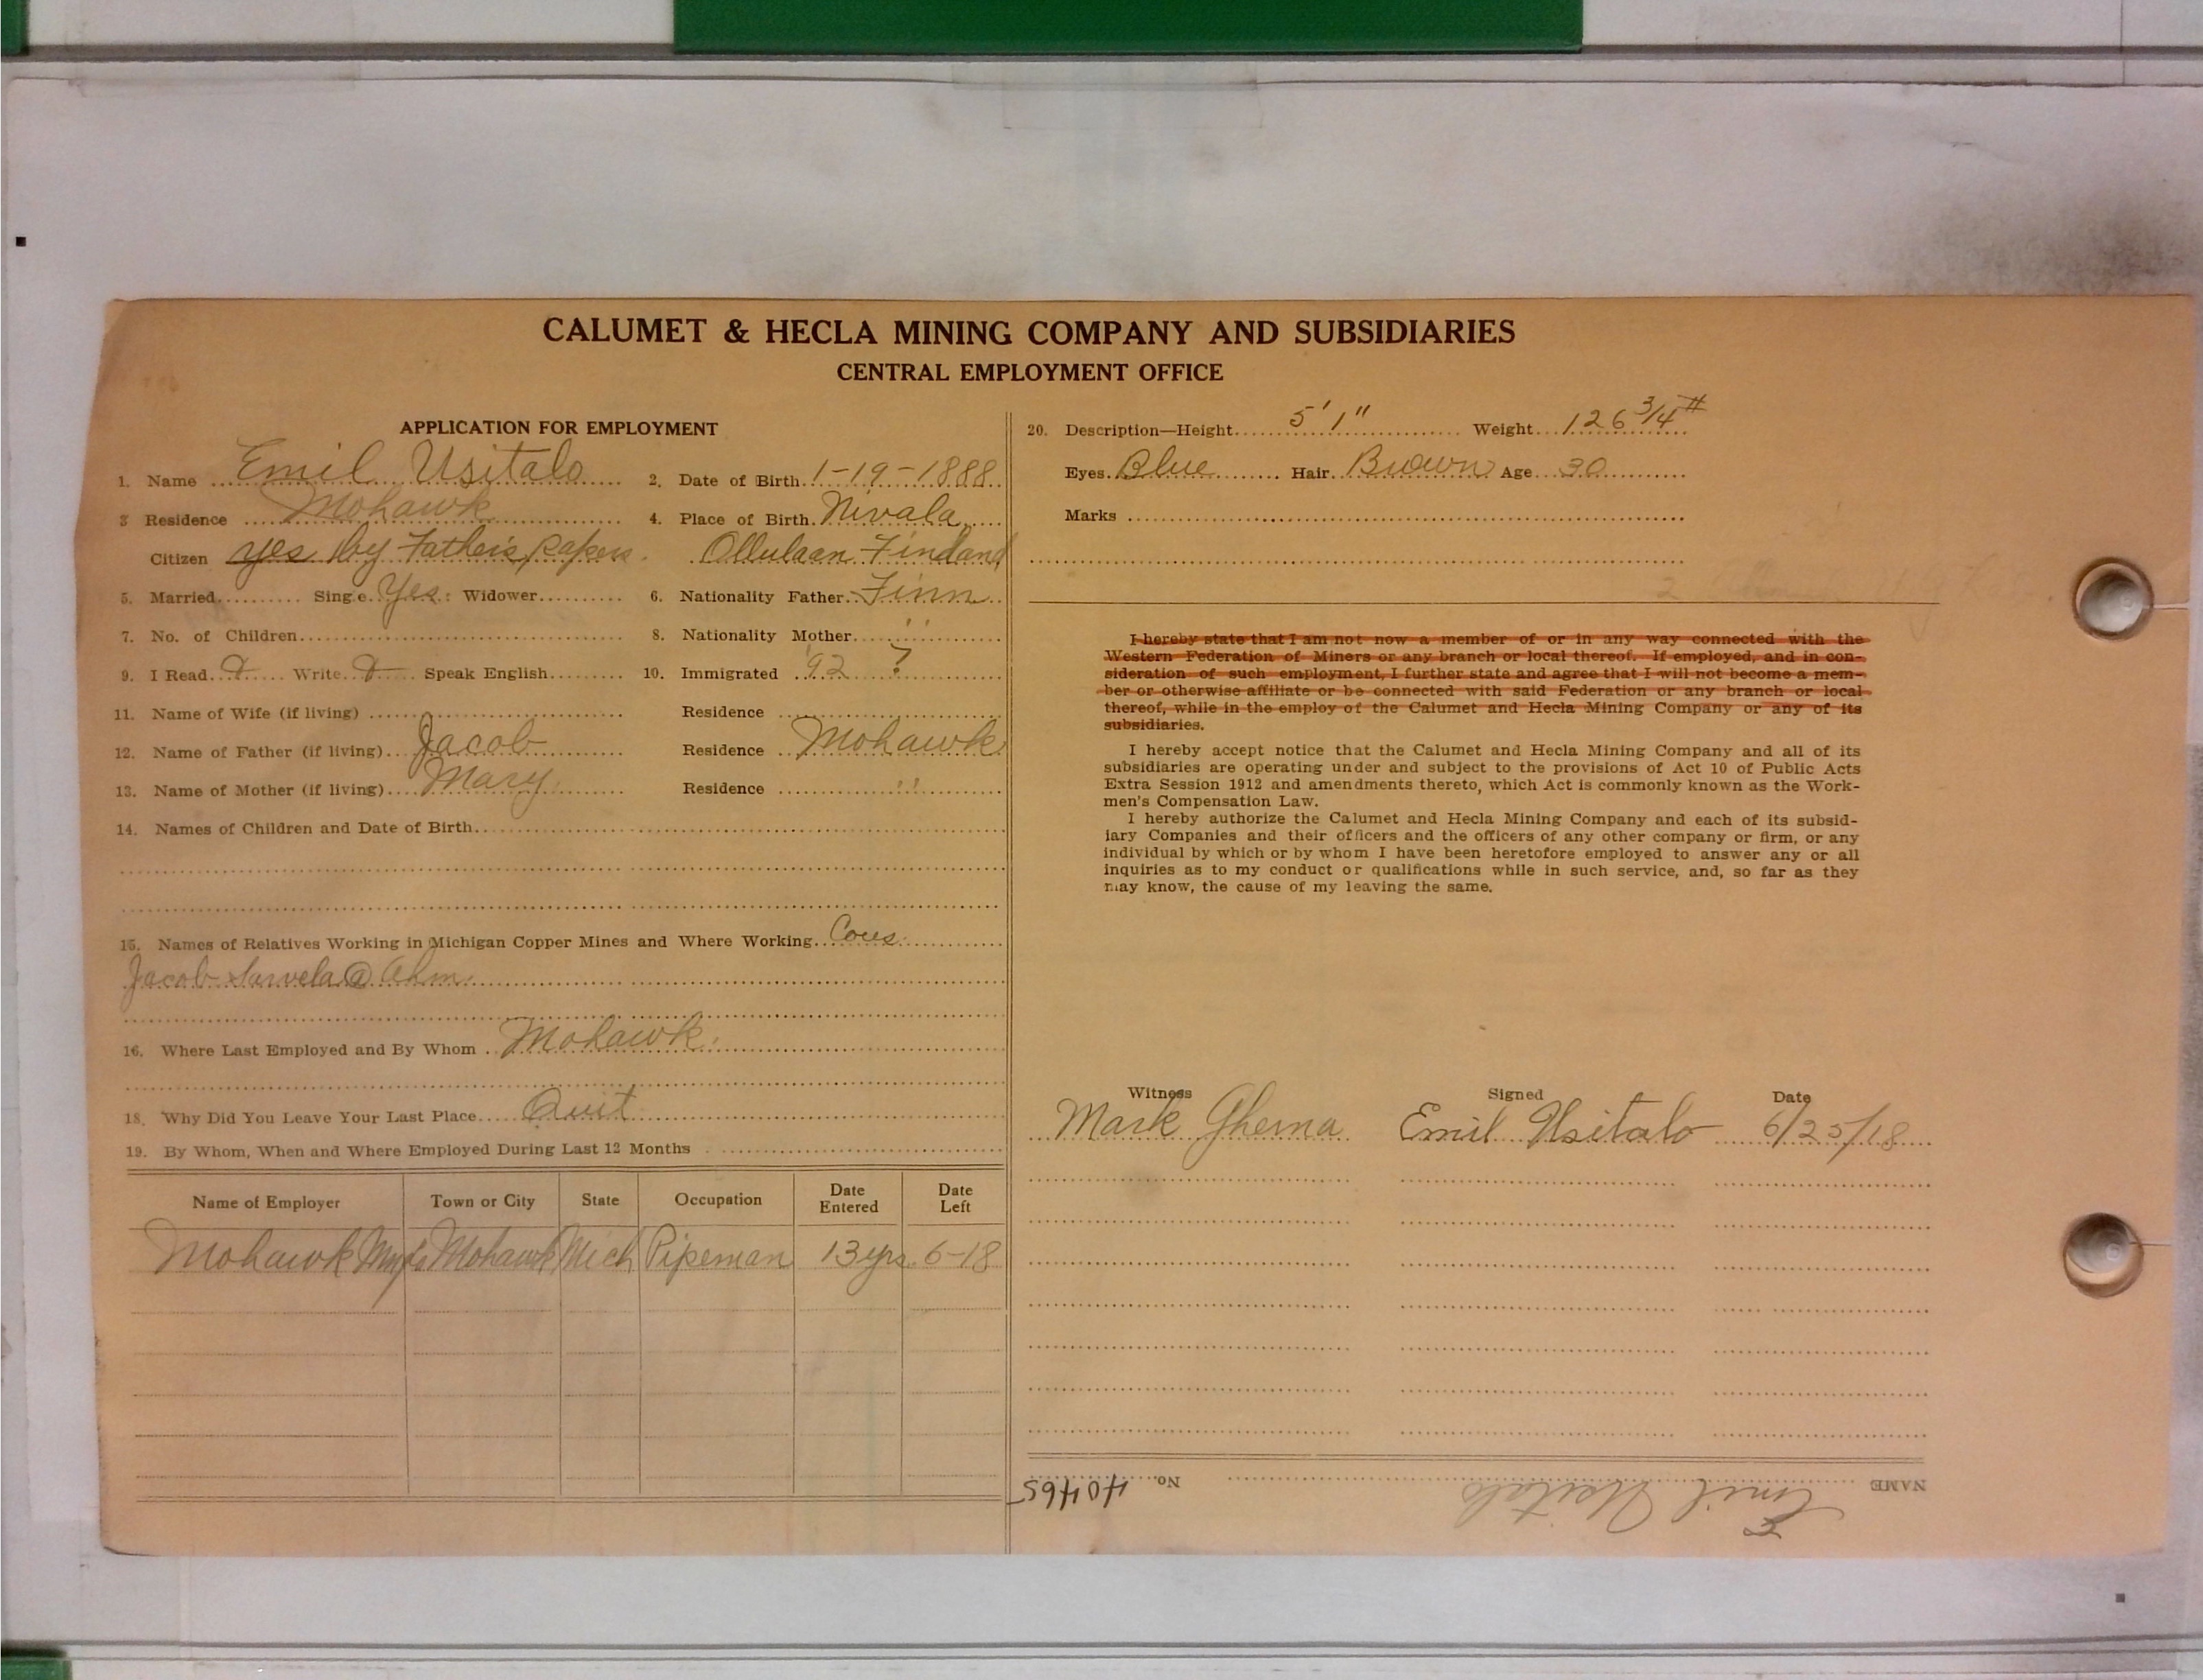 CALUMET & HECLA MINING COMPANY AND SUBSIDIARIES
CENTRAL EMPLOYMENT OFFICE
APPLICATION FOR EMPLOYMENT
1. Name Emil Usitalo 2. Date of Birth 1-19-1888
3 Residence Mohawk 4. Place of Birth Nivala
Citizen yes by Father's papers. Ollulaan Finland
5. Married Single Yes: Widower 6. Nationality Father Finn
7. No. of Children 8. Nationality Mother "
9. I Read Write Speak English 10. Immigrated '92 ?
11. Name of Wife (if living) Residence
12. Name of Father (if living) Jacob Residence Mohawk
13. Name of Mother (if living) Mary Residence "
14. Names of Children and Date of Birth
15. Names of Relatives Working in Michigan Copper Mines and Where Working Cous
Jacob Sarvela @ Ahm
16. Where Last Employed and By Whom Mohawk
18. Why Did You Leave Your Last Place Quit
19. By Whom, When and Where Employed During Last 12 Months
Name of Employer Town or City State Occupation Date Entered Date Left
Mohawk Mng Co Mohawk Mich Pipeman 13 yrs. 6-18
20. Description—Height 5' 1" Weight 126 3/4 #
Eyes Blue Hair Brown Age 30
Marks
I hereby state that I am not now a member of or in any way connected with the
Western Federation of Miners or any branch or local thereof. If employed, and in con-
sideration of such employment, I further state and agree that I will not become a mem-
ber or otherwise affiliate or be connected with said Federation or any branch or local
thereof, while in the employ of the Calumet and Hecla Mining Company or any of its
subsidiaries.
I hereby accept notice that the Calumet and Hecla Mining Company and all of its
subsidiaries are operating under and subject to the provisions of Act 10 of Public Acts
Extra Session 1912 and amendments thereto, which Act is commonly known as the Work-
men's Compensation Law.
I hereby authorize the Calumet and Hecla Mining Company and each of its subsid-
iary Companies and their officers and the officers of any other company or firm, or any
individual by which or by whom I have been heretofore employed to answer any or all
inquiries as to my conduct or qualifications while in such service, and, so far as they
may know, the cause of my leaving the same.
Witness Signed Date
Mark Gherna Emil Usitalo 6/25/18
NAME Emil Usitalo No. 40465